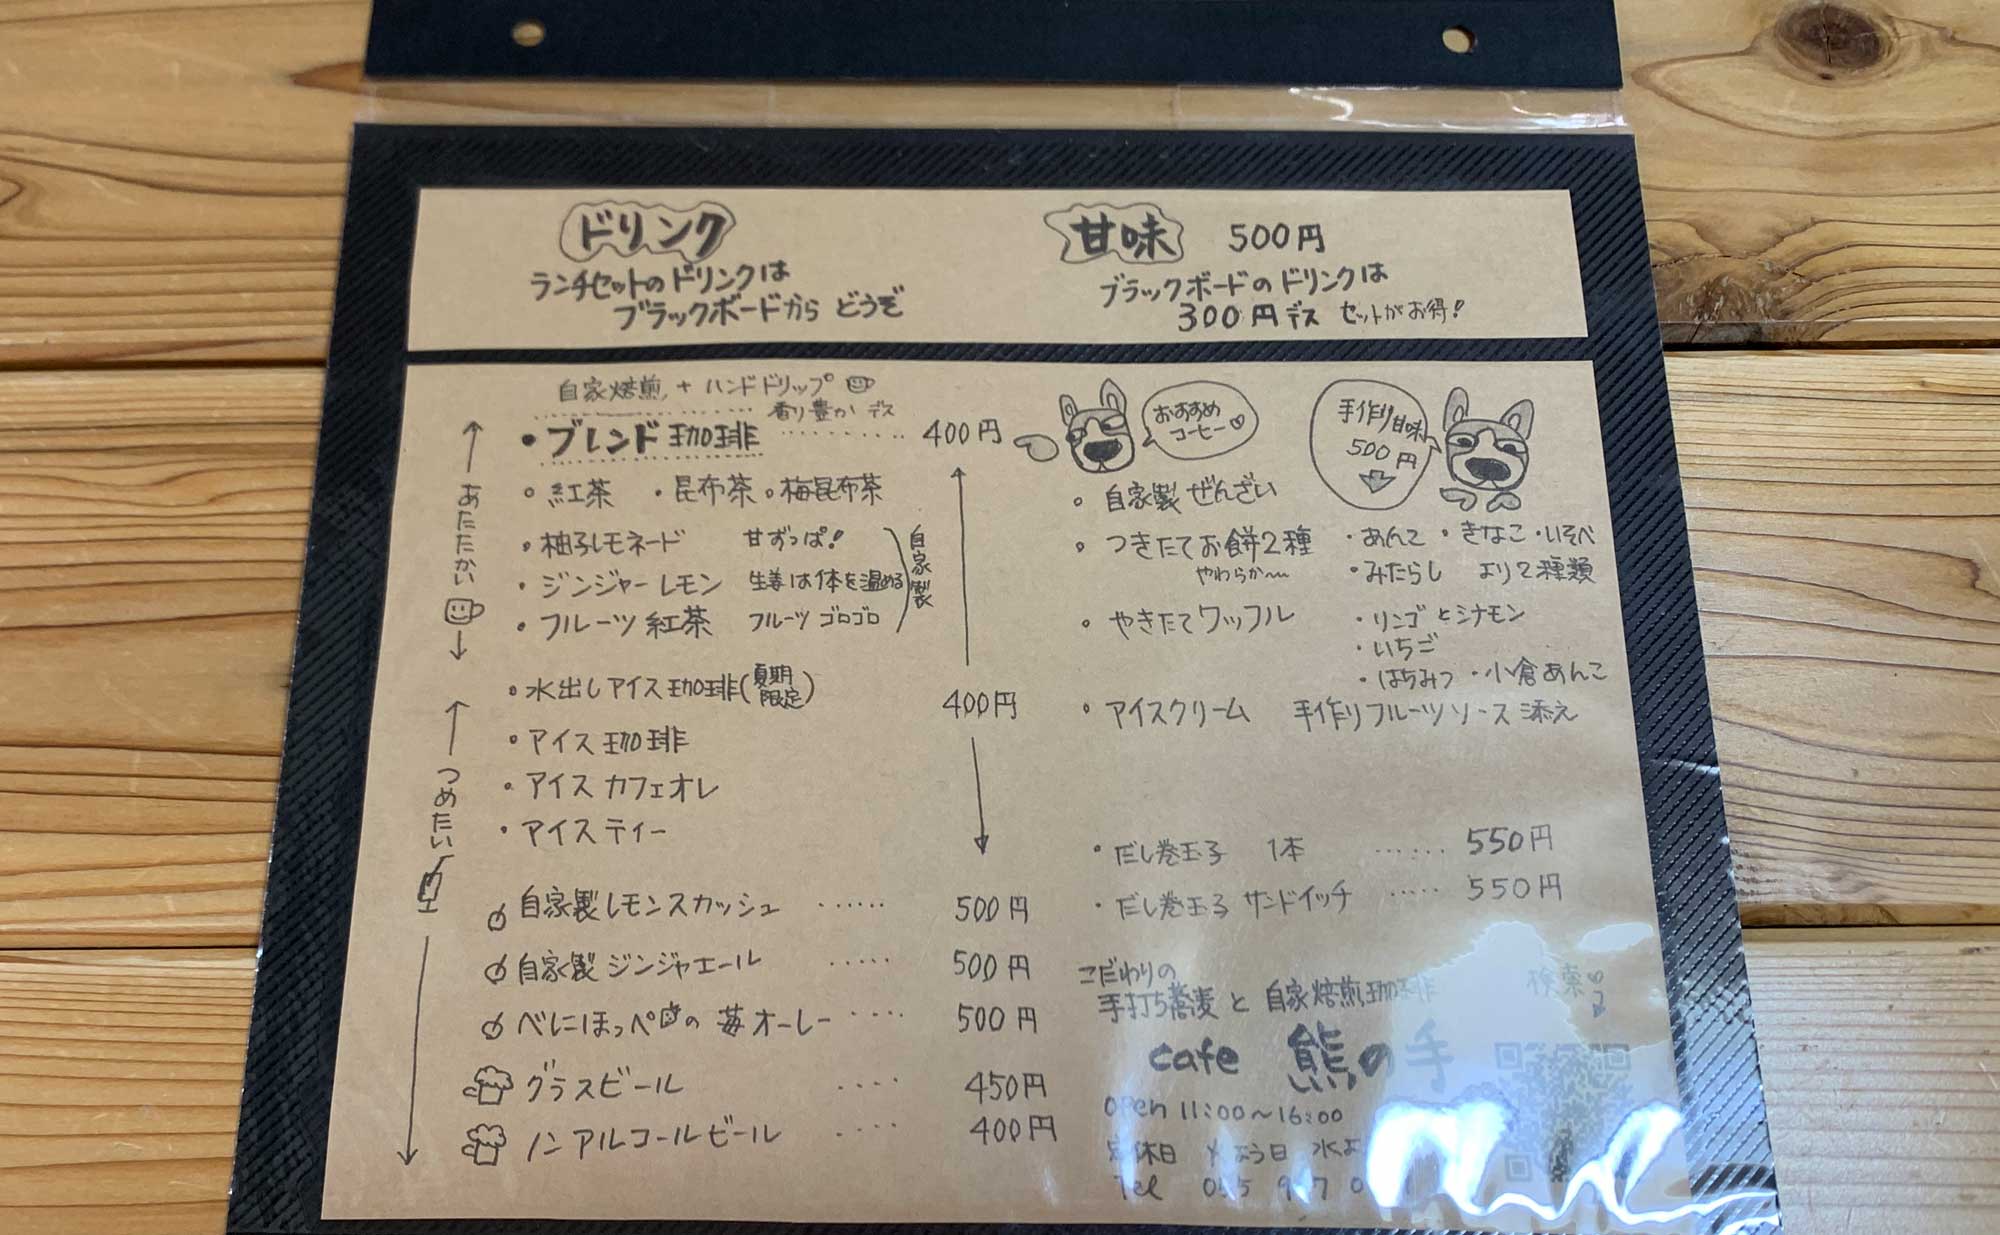 ドリンク
ランチセットのドリンクは
ブラックボードから どうぞ
甘味 500円
ブラックボードのドリンクは
300円デス セットがお得!
自家焙煎 + ハンドドリップ
香り豊かデス
・ブレンド珈琲 ········ 400円
あたたかい
・紅茶 ・昆布茶 ・梅昆布茶
・柚子レモネード 甘ずっぱ!
・ジンジャーレモン 生姜は体を温める
・フルーツ紅茶 フルーツゴロゴロ
自家製
・水出しアイス珈琲(夏期限定) 400円
つめたい
・アイス珈琲
・アイスカフェオレ
・アイスティー
自家製レモンスカッシュ ······ 500円
自家製ジンジャエール ····· 500円
べにほっぺの苺オーレー ···· 500円
グラスビール ···· 450円
ノンアルコールビール ···· 400円
おすすめ
コーヒー♡
手作り甘味
500円
・自家製ぜんざい
・つきたてお餅2種 ・あんこ ・きなこ ・いそべ
やわらか〜 ・みたらし より2種類
・やきたてワッフル ・リンゴとシナモン
・いちご
・はちみつ ・小倉あんこ
・アイスクリーム 手作りフルーツソース添え
・だし巻玉子 1本 ······ 550円
・だし巻玉子サンドイッチ ····· 550円
こだわりの
手打ち蕎麦と自家焙煎珈琲
検索
cafe 熊の手
open 11:00〜16:00
定休日
Tel